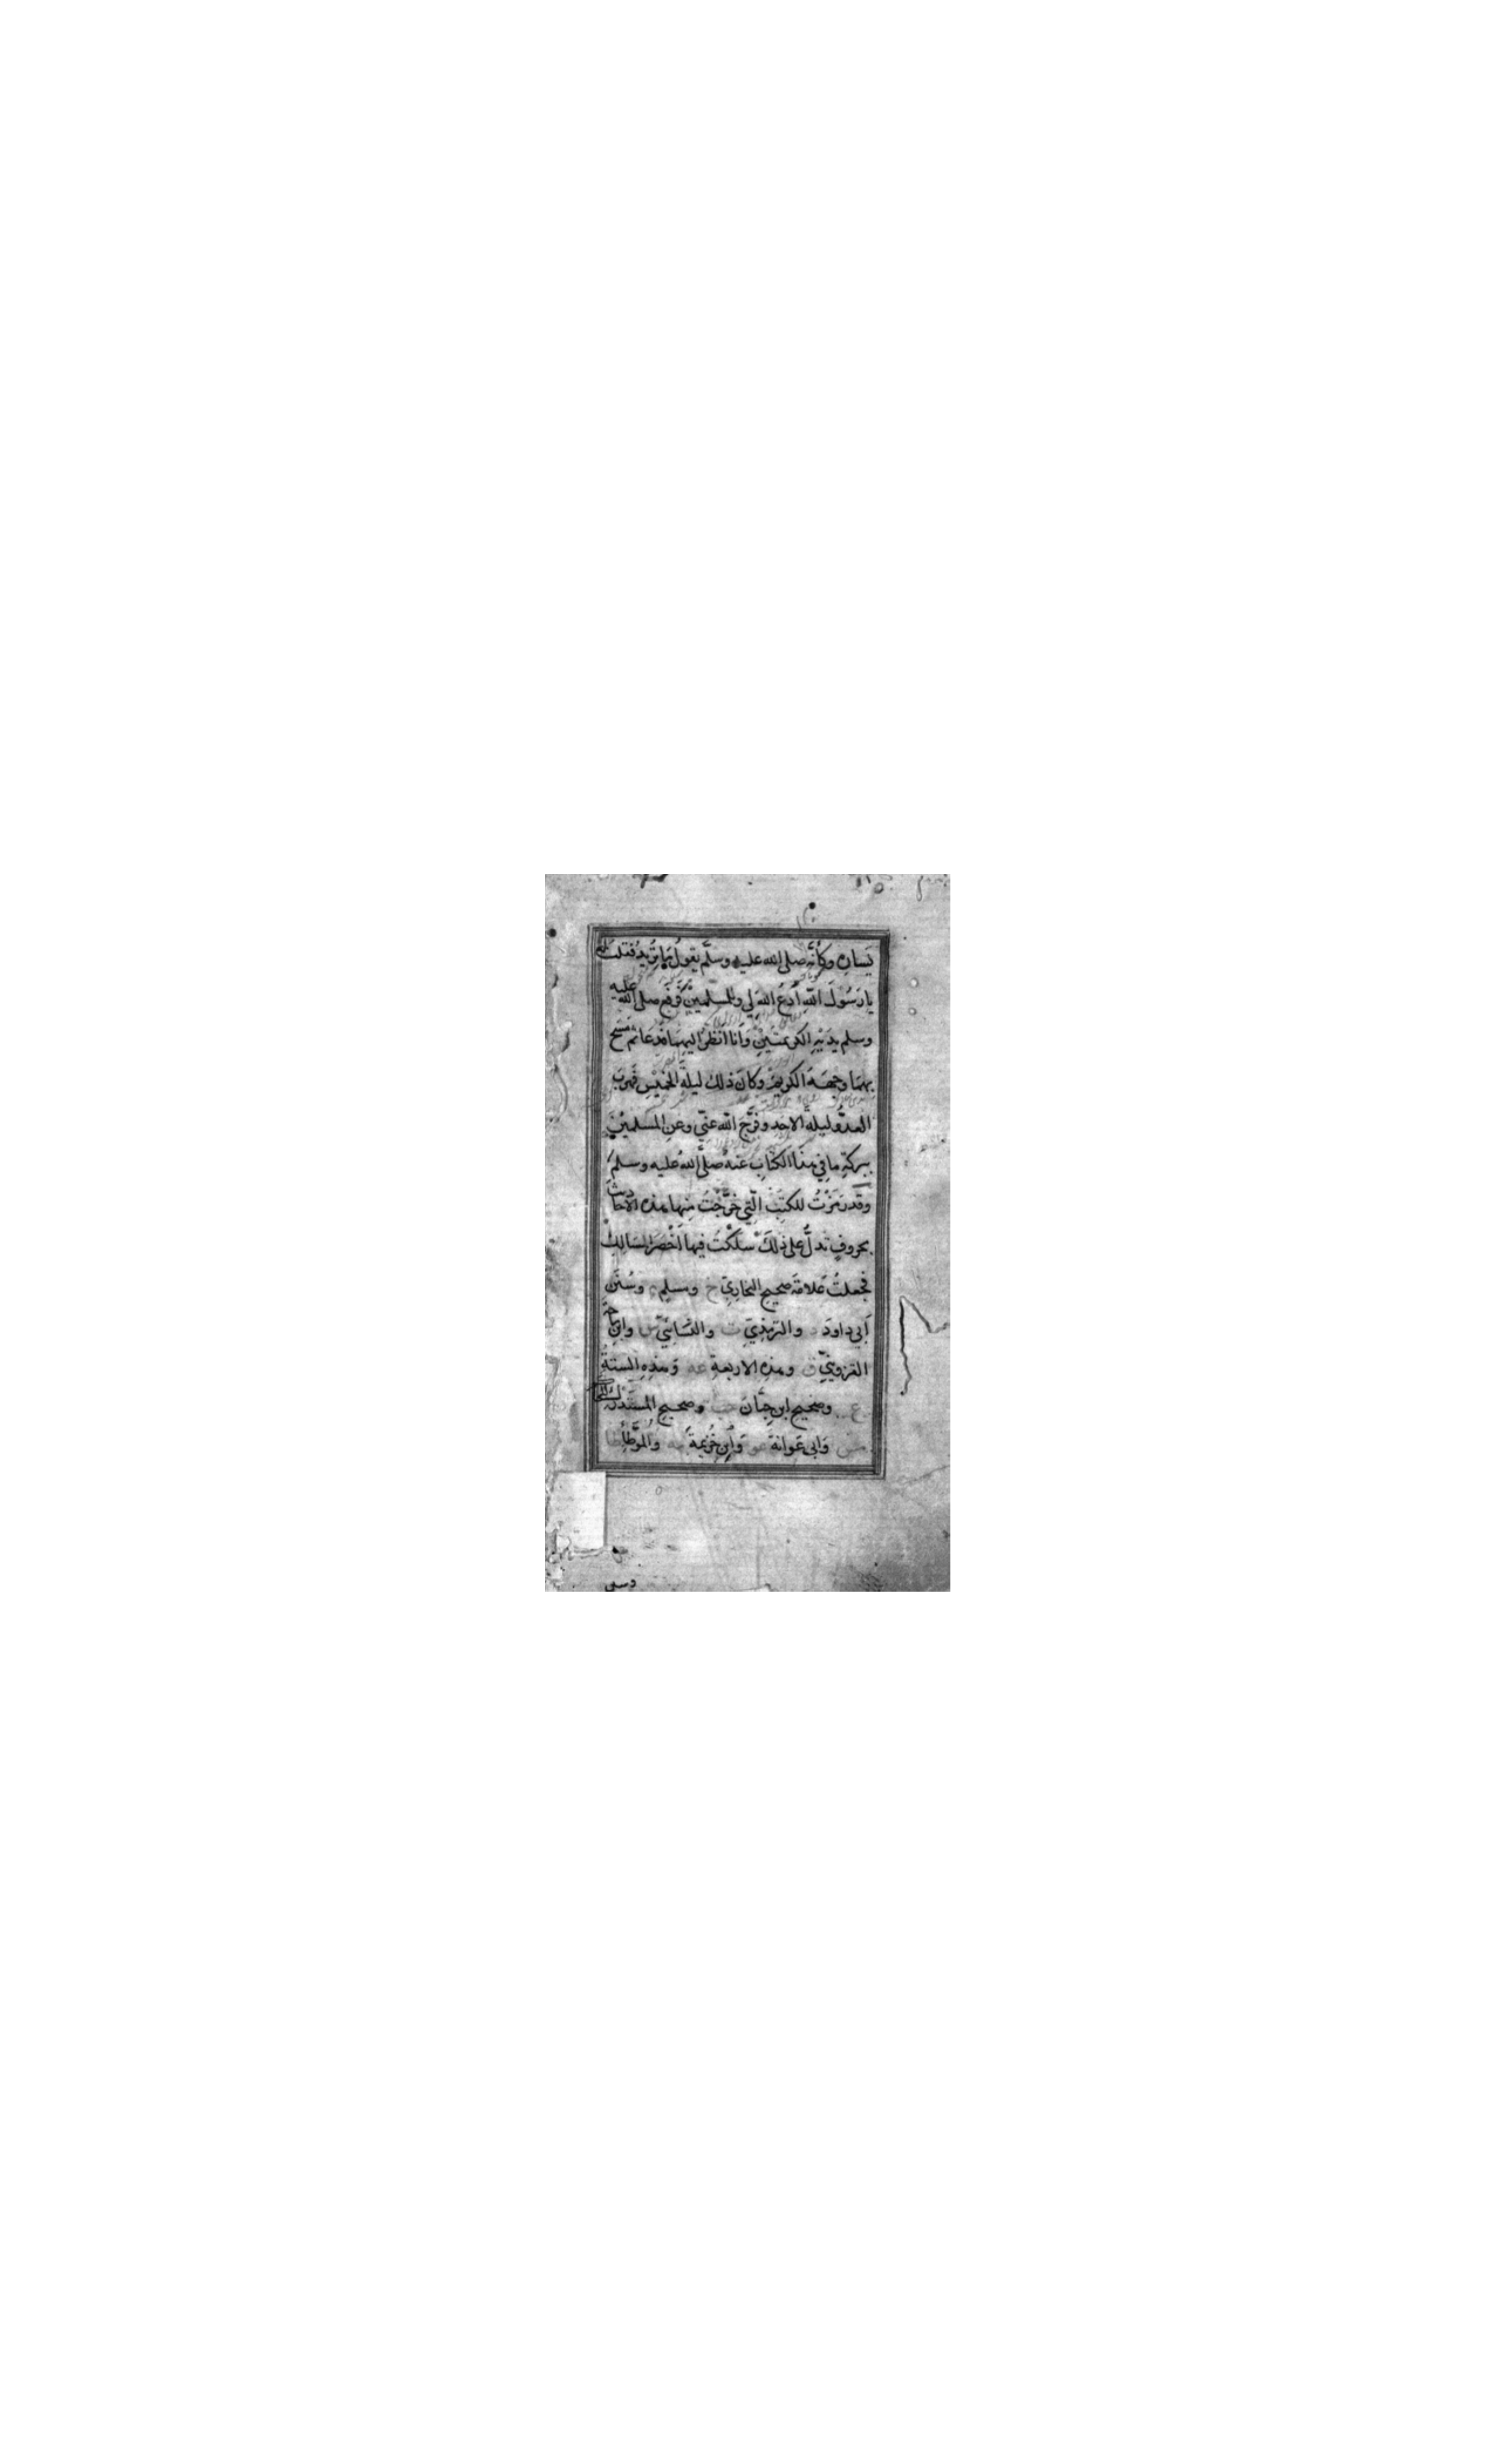 يَسارِه وكأنّه صلى الله عليه وسلَّم يقولُ مَا تُرِيدُ فقلت له
يا رَسُولَ اللهِ اُدعُ اللهَ لِي وللمسلمينَ فَرَفَع صلى الله عليه
وسلم يدَيْهِ الكريمتَينِ وَاَنا اَنظُرُ اليهِمَا فدَعَا ثم مَسَحَ
بهِمَا وجهَهُ الكريمَ وكانَ ذلك ليلةَ الخميْسِ فهرَبَ
العدوُّ ليلةَ الاحَدِ وفرَّجَ الله عنّي وعنِ المسلمِيْنَ
ببركةِ ما في هٰذَا الكتابِ عنهُ صلَّى اللهُ عليه وسلمَ
وقَد رَمَزْتُ للكتبِ الّتي خرَّجْتُ مِنها هذه الاحاديثَ
بحروفٍ تدلُّ على ذلكَ سَلَكْتُ فيها اَخْصَرَ المسَالِكِ
فجعلتُ عَلامَةَ صحيحِ البخاريِّ خ ومسلمٍ م وسُنَنِ
اَبي داودَ د والترمذِيِّ ت والنَّسَائِيِّ س وابنِ ماجةَ
القزوينيِّ ق وهذِه الاربعةِ عه وَهذِهِ الستةُ
ع وصَحيحِ ابنِ حِبَّانَ حب وصحيحِ المستَدْرَكِ للحاكم
مس وَابي عَوانةَ عو وَابنِ خُزيمةَ مه والمُوطَّأِ طا
وسنن